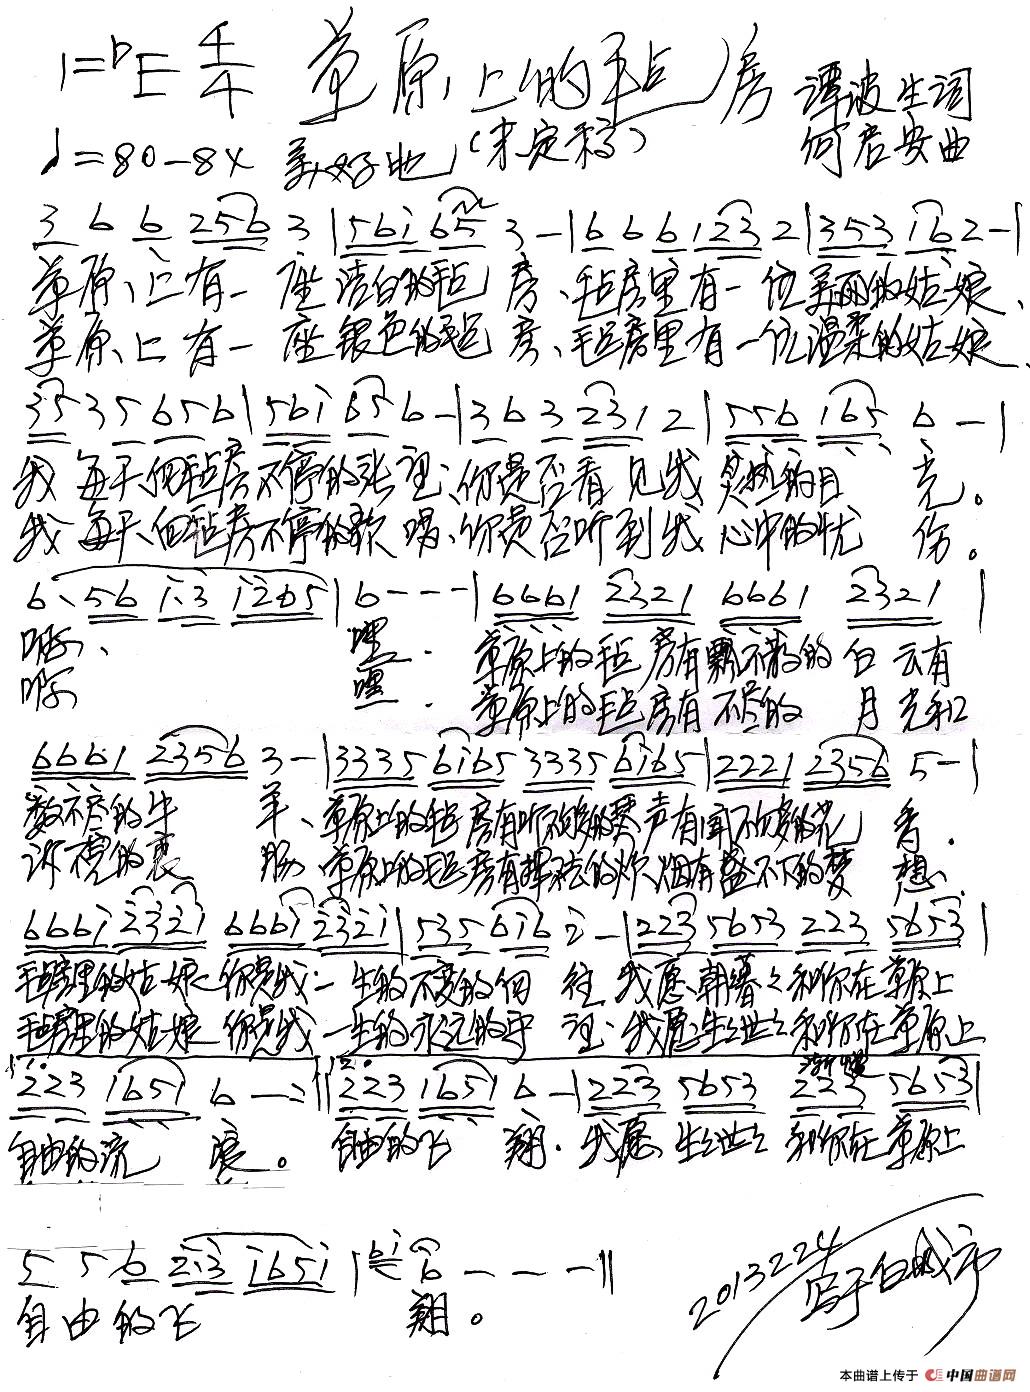 1=bE 4/4 草原上的毡房 谭波生词
♩=80-84 美好地 (未定稿) 何君安曲
3 6 6 256 3 | 561 65 3 - | 6 6 6 123 2 | 353 16 2 - |
草原上有一座洁白的毡房、毡房里有一位美丽的姑娘、
草原上有一座银色的毡房、毡房里有一位温柔的姑娘、
35 3 5 656 | 561 65 6 - | 3 6 3 231 2 | 556 165 6 - |
我每天向毡房不停的张望、你是否看见我炙热的目光。
我每天向毡房不停的歌唱、你是否听到我心中的忧伤。
6· 56 1·3 1265 | 6 - - - | 6661 2321 6661 2321 |
啊、嘿. 草原上的毡房有飘不散的白云有
啊 嘿. 草原上的毡房有不尽的月光和
6661 2356 3 - | 3335 6165 3335 6165 | 2221 2356 5 - |
数不尽的牛羊、草原上的毡房有听不够的琴声有闻不够的花香.
诉不完的衷肠、草原上的毡房有挥不去的炊烟有盛不下的梦想、
6661 2321 6661 2321 | 535 616 2 - | 223 5653 223 5653 |
毡房里的姑娘你是我一生的不变的向往我愿朝暮暮和你在草原上
毡房里的姑娘你是我一生的永远的守望我愿生生世世和你在草原上
1. 223 1651 6 - :|| 2. 223 1651 6 - | 223 5653 渐慢 223 5653 |
自由的流浪。自由的飞翔. 我愿生生世世和你在草原上
5 5 6 2·3 1651 | 61 6 - - - ||
自由的飞翔。
2013224 写于白城市
本曲谱上传于 中国曲谱网